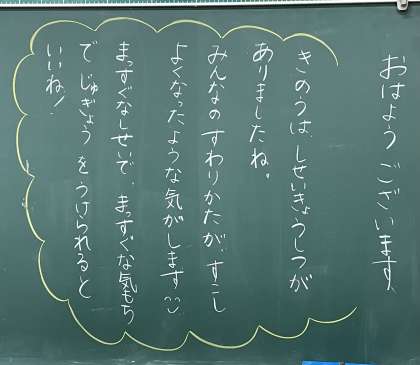 おはようございます、
きのうは、しせいきょうしつが
ありましたね。
みんなのすわりかたが、すこし
よくなったような気がします
まっすぐなしせいで、まっすぐな気もち
でじゅぎょうをうけられると
いいね！